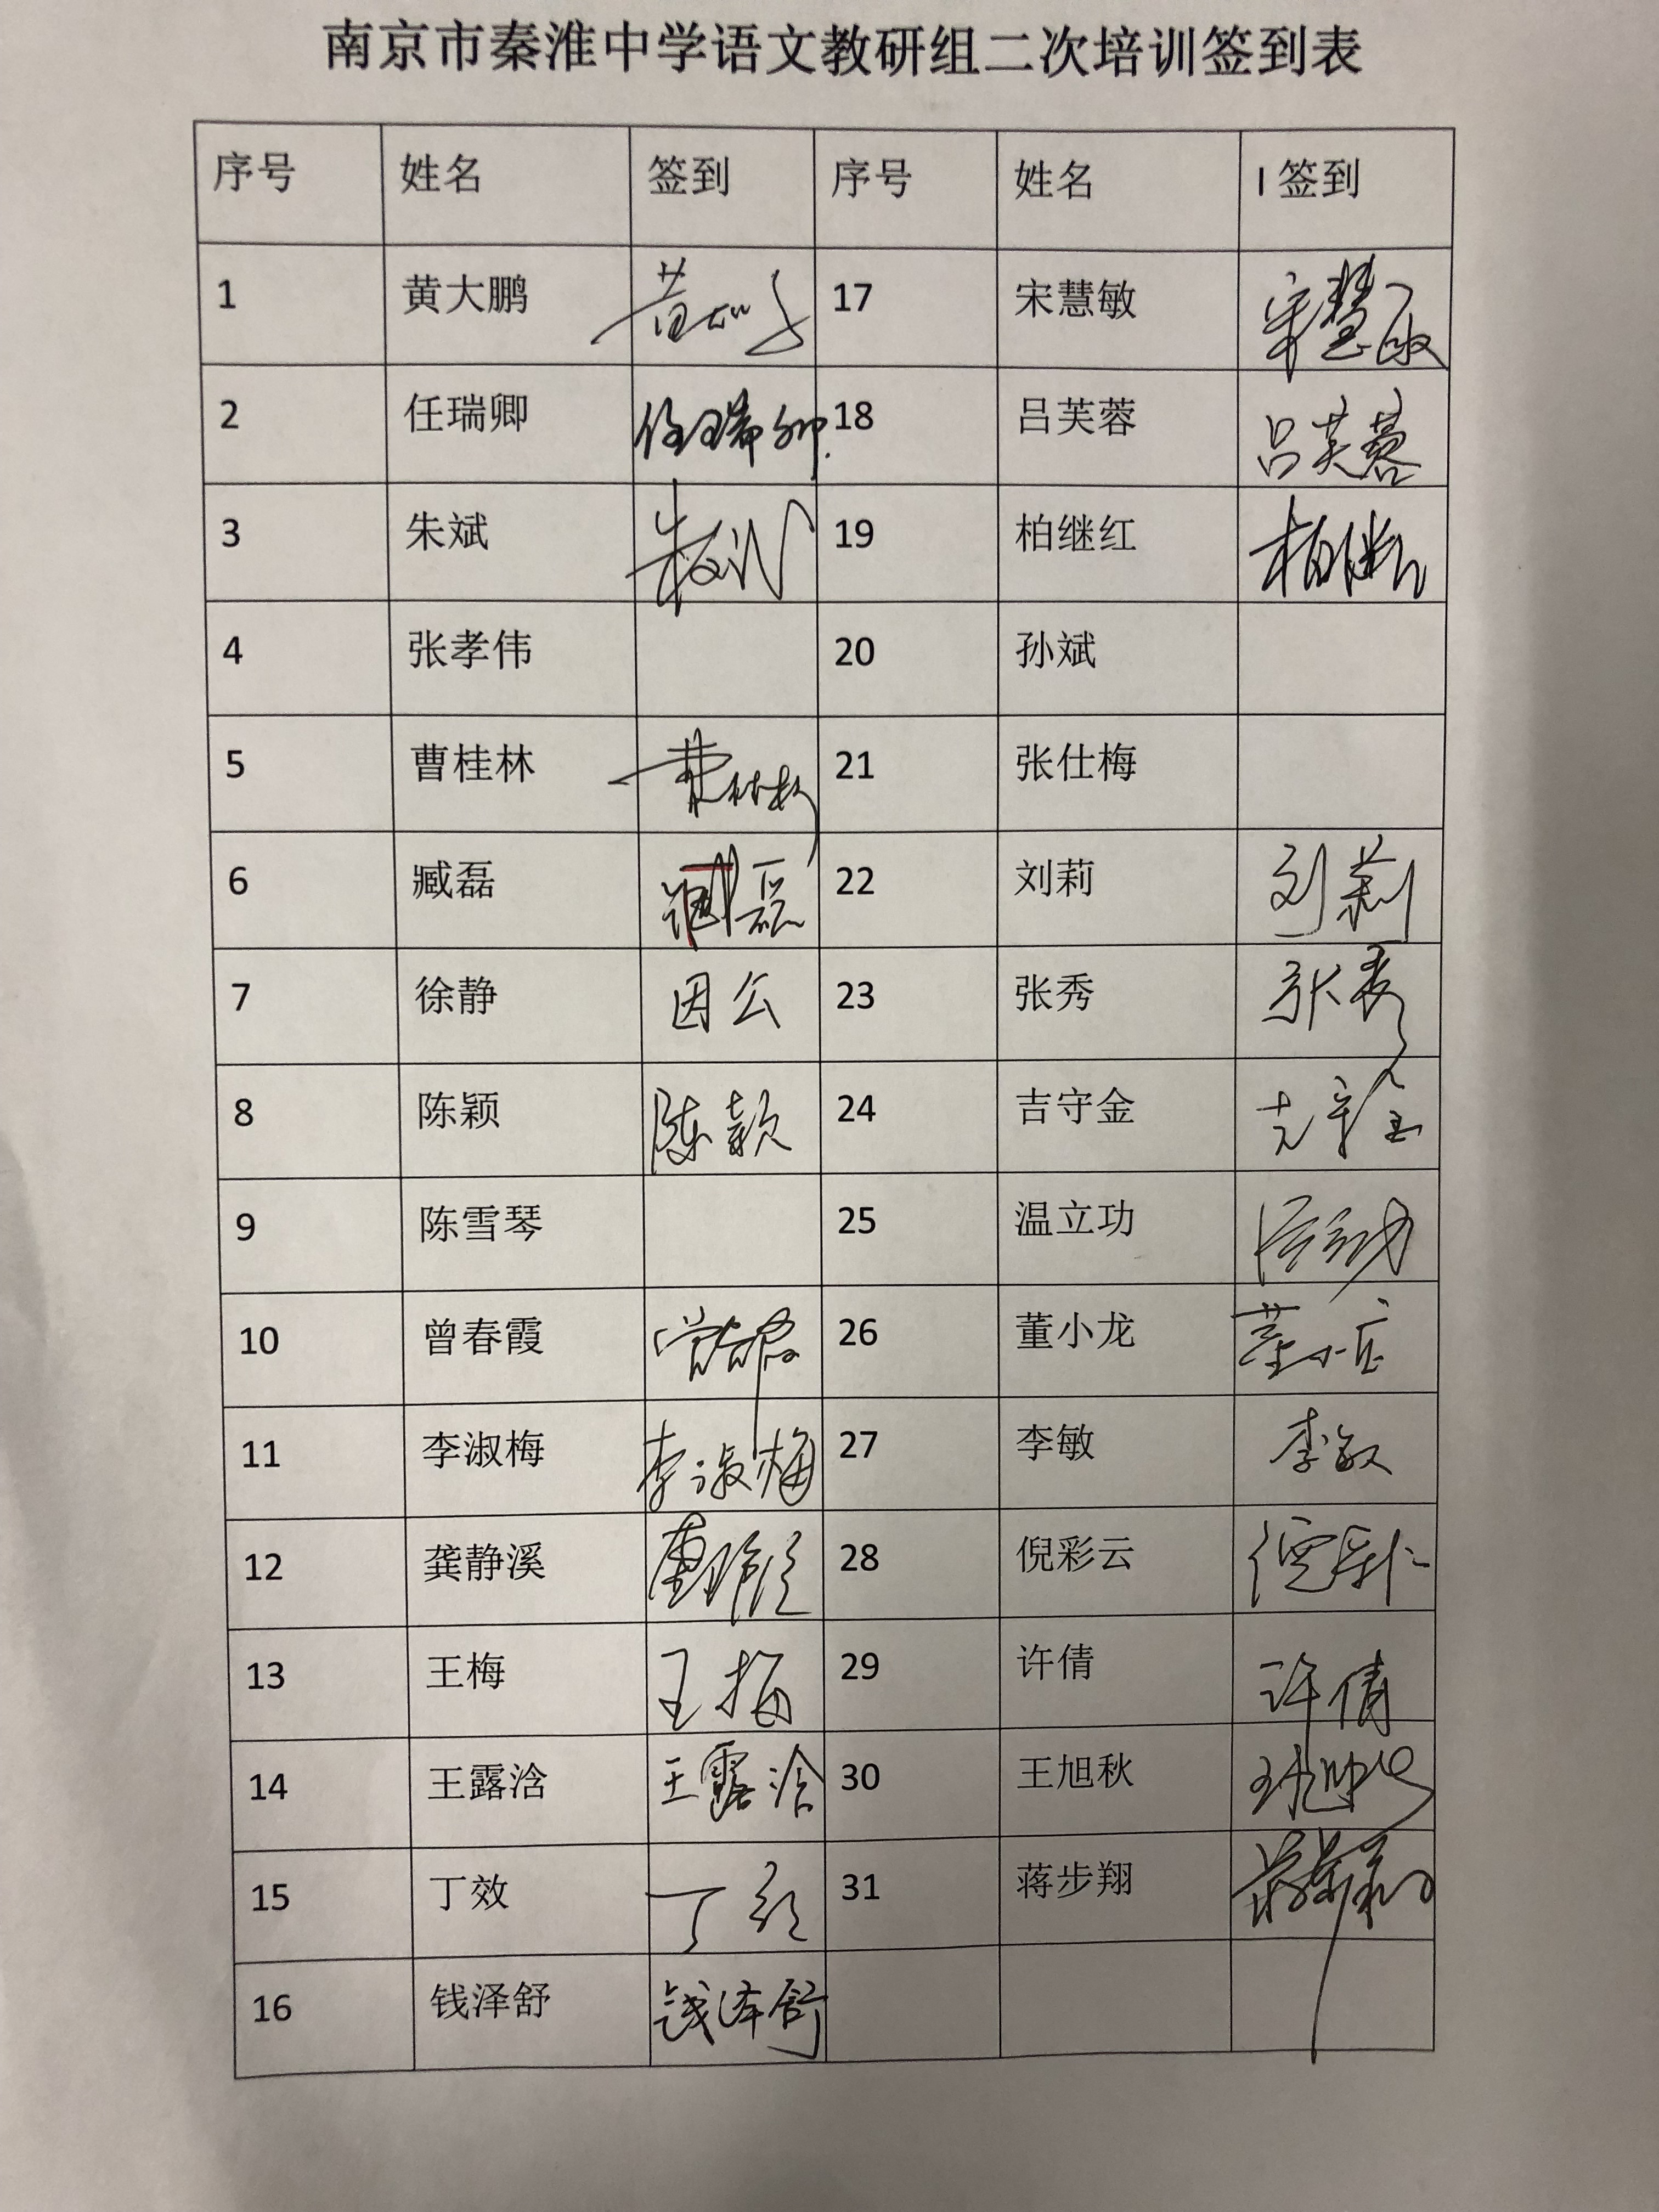 南京市秦淮中学语文教研组二次培训签到表
序号 姓名 签到 序号 姓名 I 签到
1 黄大鹏 黄大鹏 17 宋慧敏 宋慧敏
2 任瑞卿 任瑞卿 18 吕芙蓉 吕芙蓉
3 朱斌 朱斌 19 柏继红 柏继红
4 张孝伟 20 孙斌
5 曹桂林 21 张仕梅
6 臧磊 臧磊 22 刘莉 刘莉
7 徐静 因公 23 张秀 张秀
8 陈颖 陈颖 24 吉守金 吉守金
9 陈雪琴 25 温立功 温立功
10 曾春霞 曾春霞 26 董小龙 董小龙
11 李淑梅 李淑梅 27 李敏 李敏
12 龚静溪 龚静溪 28 倪彩云 倪彩云
13 王梅 王梅 29 许倩 许倩
14 王露浛 王露浛 30 王旭秋 王旭秋
15 丁效 丁效 31 蒋步翔 蒋步翔
16 钱泽舒 钱泽舒